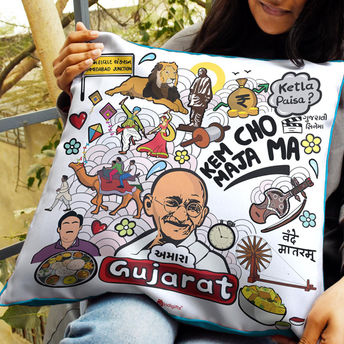 અમદાવાદ જંક્શન
AHMEDABAD JUNCTION
Ketla
Paisa?
ગુજરાતી
સિનેમા
KEM CHO
MAJA MA
वंदे
मातरम्
અમારા
Gujarat